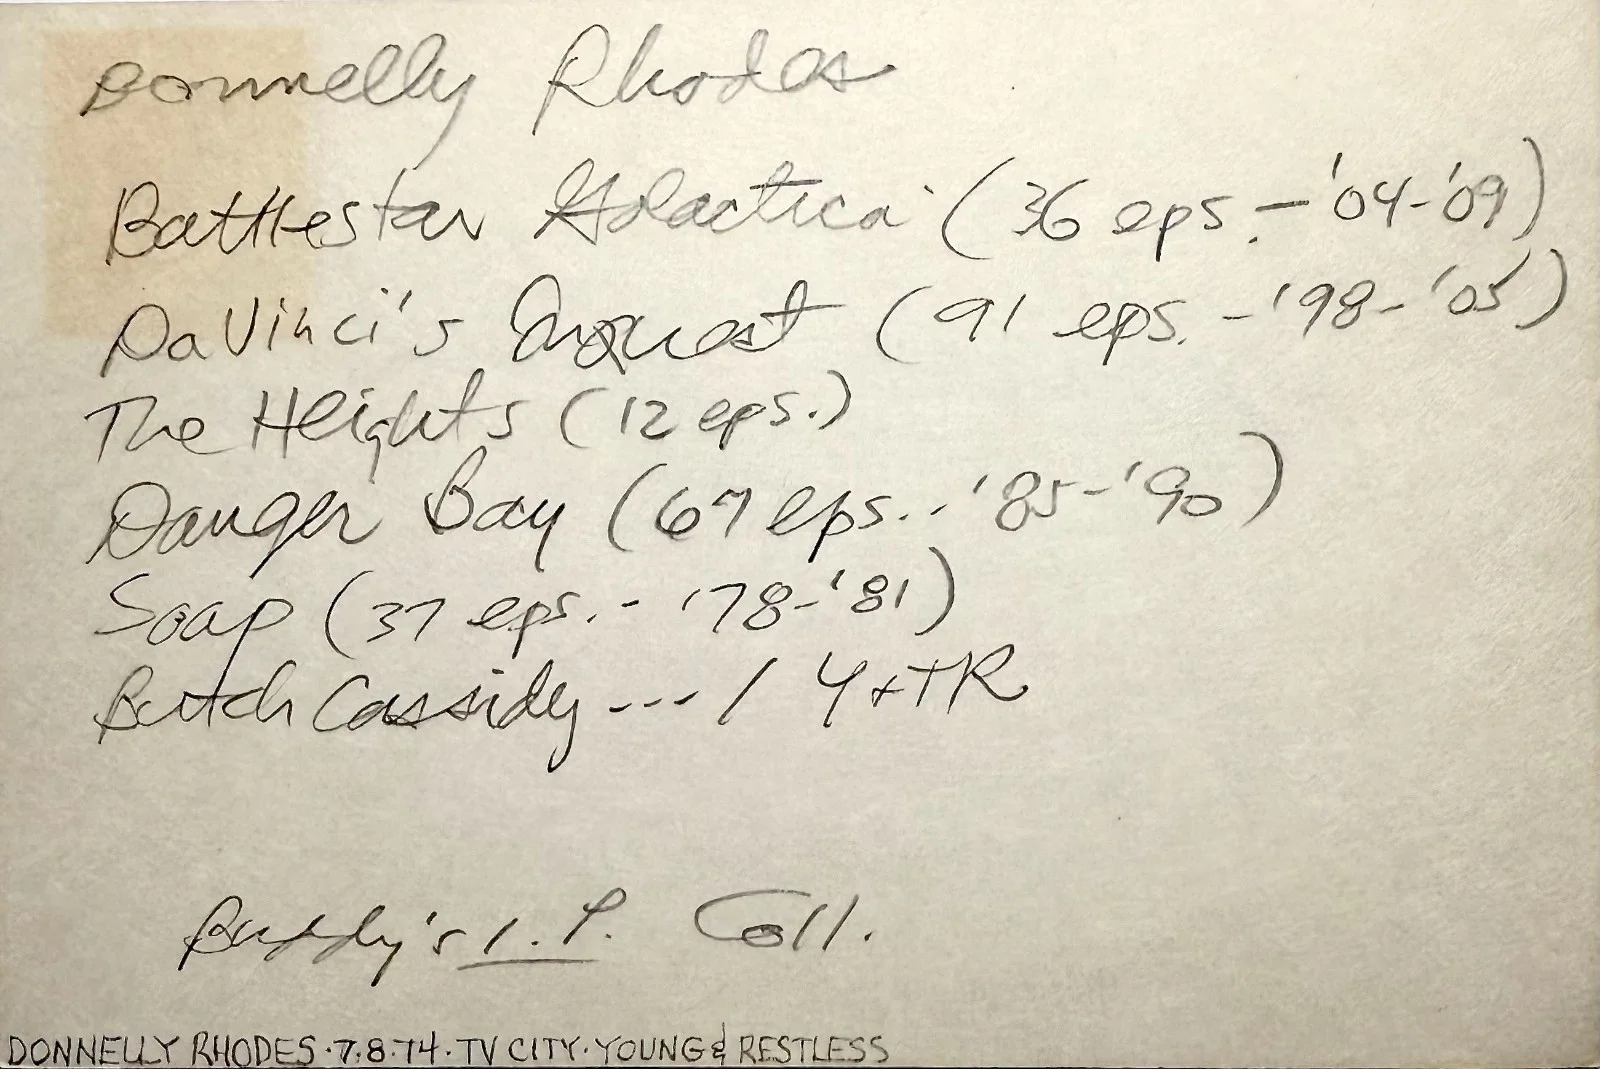 Donnelly Rhodes
Battlestar Galactica (36 eps. - '04-'09)
DaVinci's Inquest (91 eps. - '98-'05)
The Heights (12 eps.)
Danger Bay (67 eps. - '85-'90)
Soap (37 eps. - '78-'81)
Butch Cassidy --- / Y+TR
Buddy's I.P. Coll.
DONNELLY RHODES·7·8·74·TV CITY·YOUNG & RESTLESS